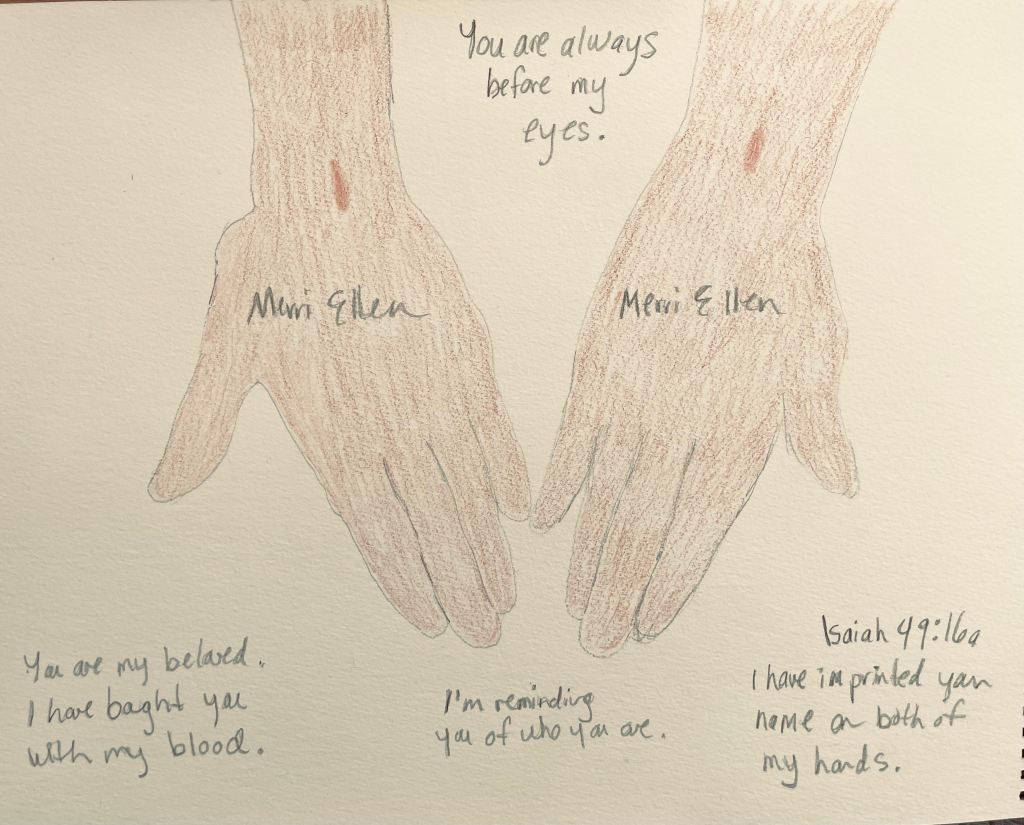 You are always
before my
eyes.
Merri Ellen
Merri Ellen
You are my beloved.
I have bought you
with my blood.
I'm reminding
you of who you are.
Isaiah 49:16a
I have imprinted your
name on both of
my hands.